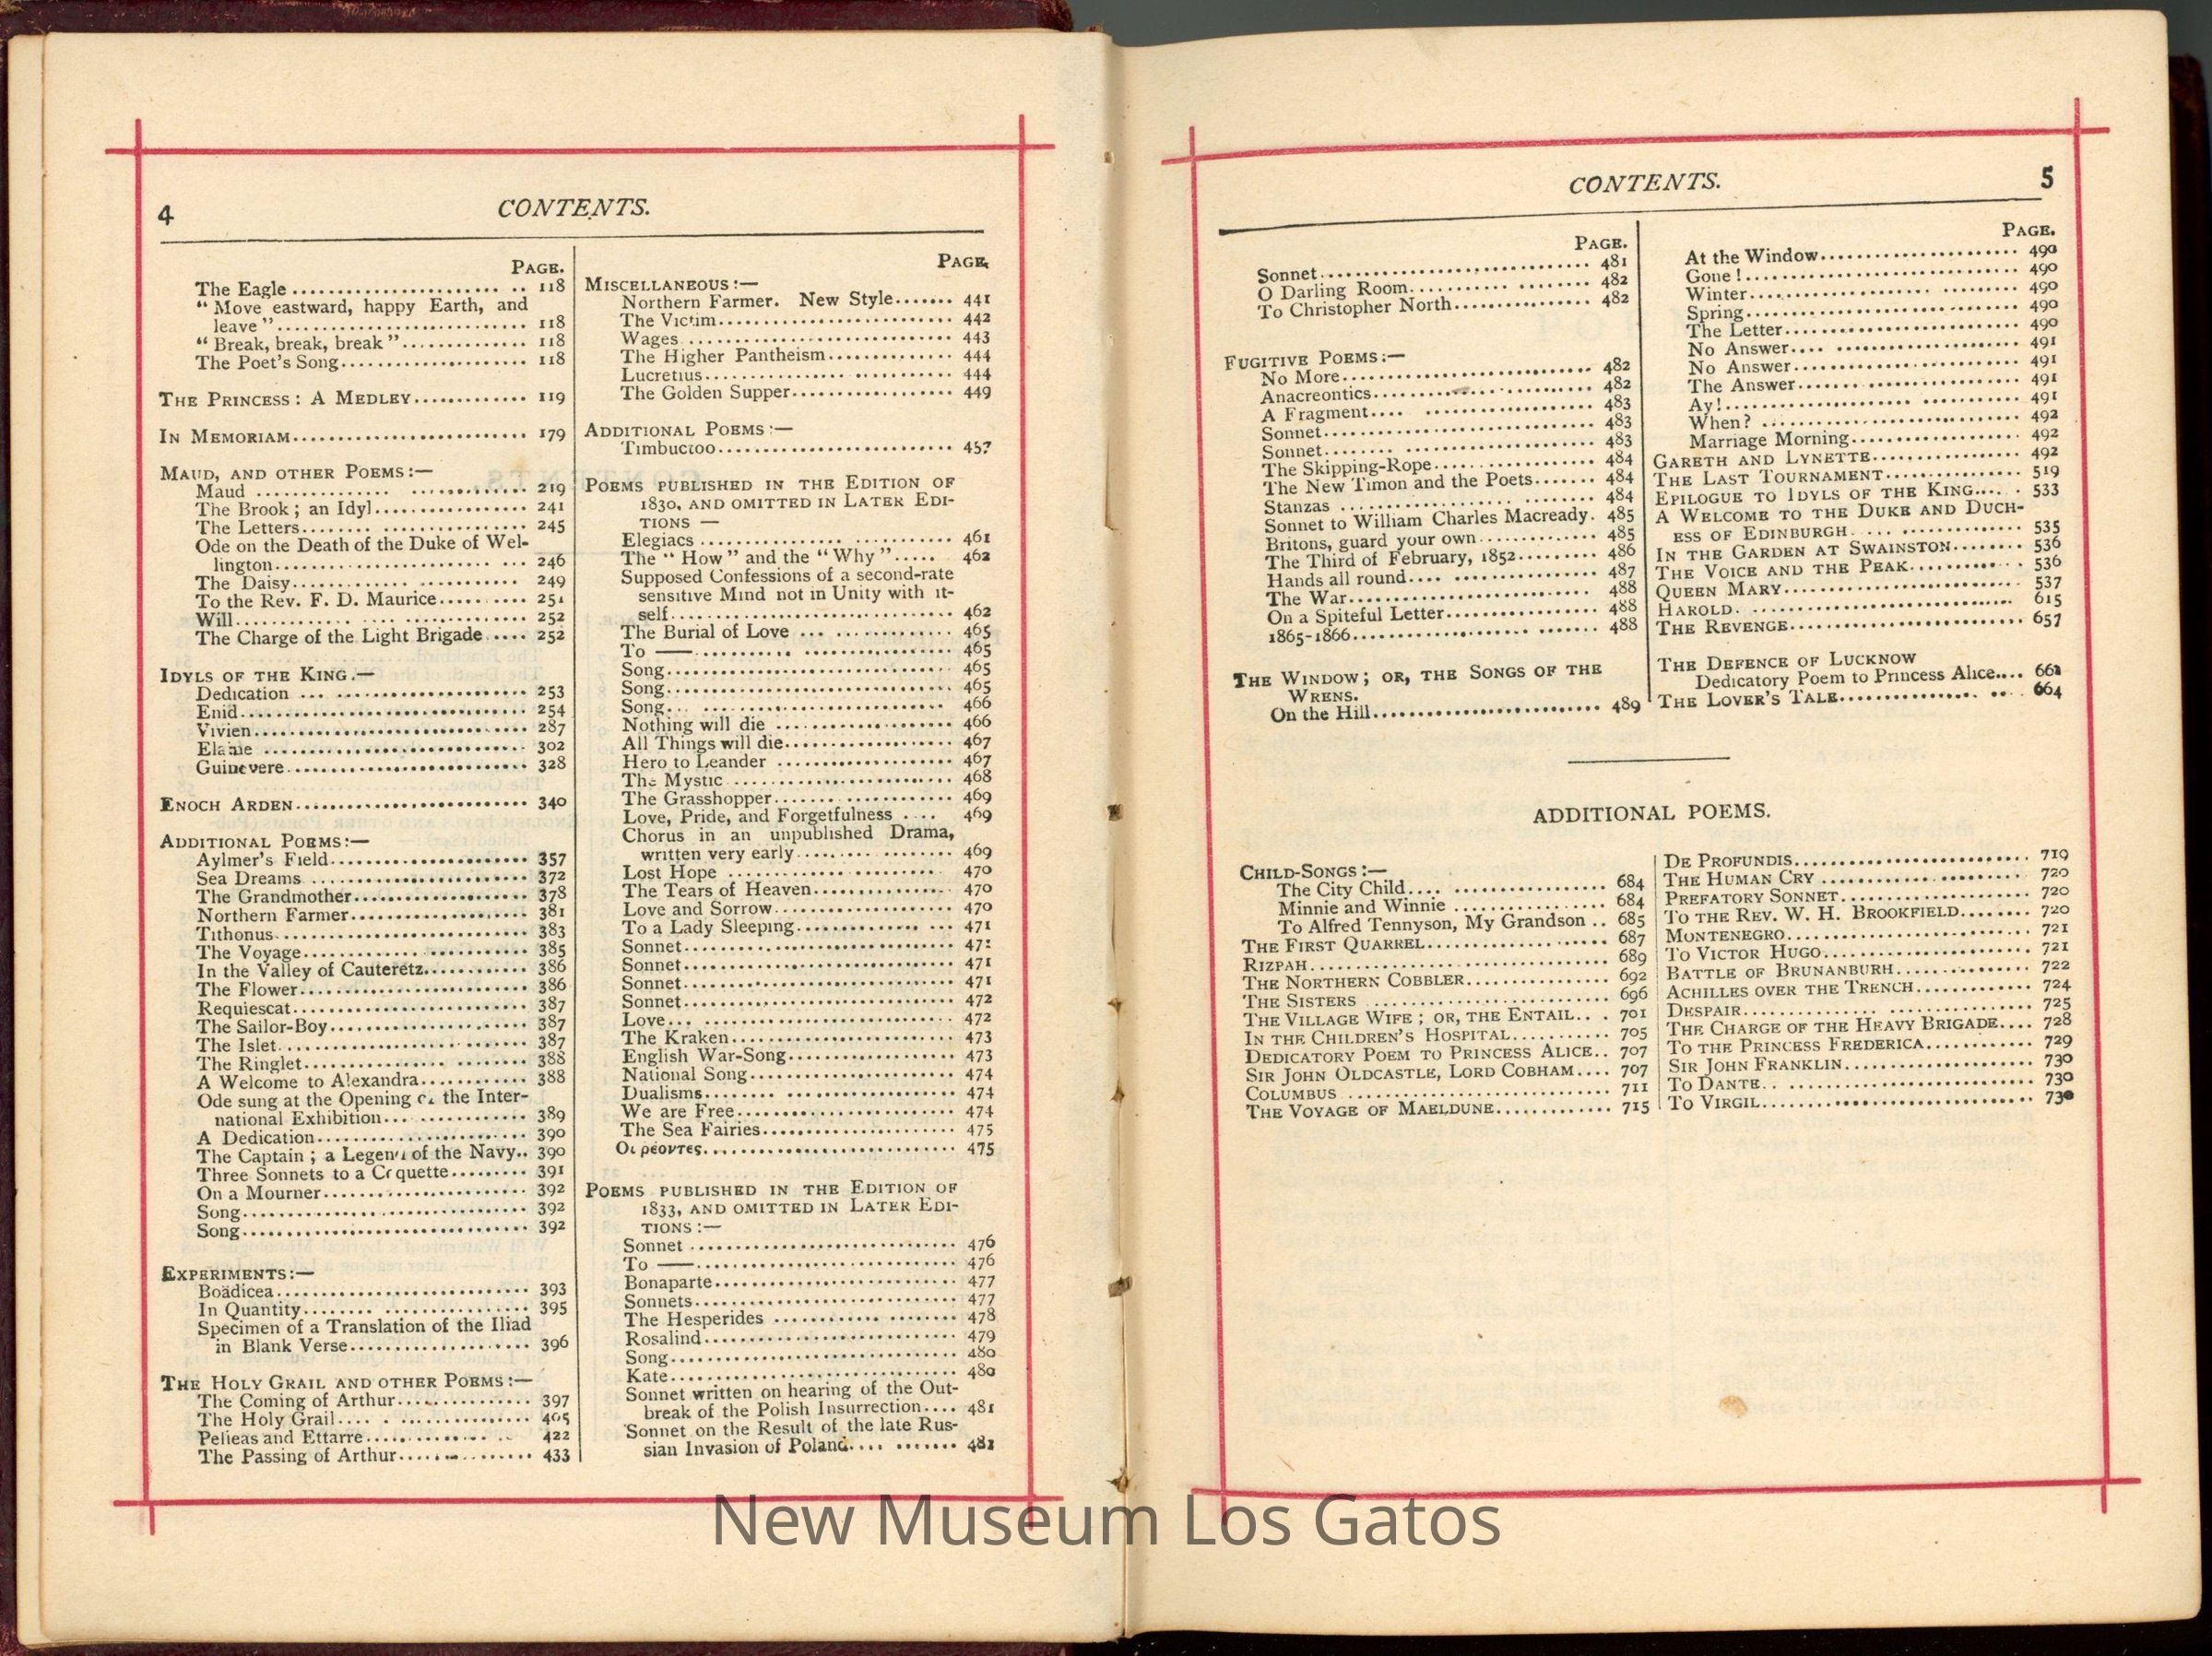 4
CONTENTS.
PAGE.
The Eagle .......................... 118
“ Move eastward, happy Earth, and
leave ”............................ 118
“ Break, break, break ”.............. 118
The Poet's Song.................... 118
THE PRINCESS: A MEDLEY............. 119
IN MEMORIAM.......................... 179
MAUD, AND OTHER POEMS:—
Maud .......................... 219
The Brook ; an Idyl................. 241
The Letters........................ 245
Ode on the Death of the Duke of Wel-
lington............................ 246
The Daisy.......................... 249
To the Rev. F. D. Maurice.......... 251
Will............................... 252
The Charge of the Light Brigade .... 252
IDYLS OF THE KING.—
Dedication ........................ 253
Enid............................... 254
Vivien............................. 287
Elaine ............................ 302
Guinevere.......................... 328
ENOCH ARDEN.......................... 340
ADDITIONAL POEMS:—
Aylmer's Field...................... 357
Sea Dreams ........................ 372
The Grandmother.................... 378
Northern Farmer.................... 381
Tithonus........................... 383
The Voyage......................... 385
In the Valley of Cauteretz............ 386
The Flower......................... 386
Requiescat.......................... 387
The Sailor-Boy...................... 387
The Islet........................... 387
The Ringlet......................... 388
A Welcome to Alexandra............ 388
Ode sung at the Opening of the Inter-
national Exhibition................ 389
A Dedication........................ 390
The Captain ; a Legend of the Navy.. 390
Three Sonnets to a Coquette......... 391
On a Mourner....................... 392
Song............................... 392
Song............................... 392
EXPERIMENTS:—
Boädicea............................ 393
In Quantity......................... 395
Specimen of a Translation of the Iliad
in Blank Verse.................... 396
THE HOLY GRAIL AND OTHER POEMS :—
The Coming of Arthur............... 397
The Holy Grail..................... 405
Pelleas and Ettarre................. 422
The Passing of Arthur............... 433
PAGE.
MISCELLANEOUS :—
Northern Farmer. New Style....... 441
The Victim......................... 442
Wages ............................. 443
The Higher Pantheism.............. 444
Lucretius........................... 444
The Golden Supper.................. 449
ADDITIONAL POEMS :—
Timbuctoo.......................... 457
POEMS PUBLISHED IN THE EDITION OF
1830, AND OMITTED IN LATER EDI-
TIONS —
Elegiacs ............................ 461
The “ How ” and the “ Why ”..... 462
Supposed Confessions of a second-rate
sensitive Mind not in Unity with it-
self............................... 462
The Burial of Love ................ 465
To ——............................ 465
Song............................... 465
Song............................... 465
Song............................... 466
Nothing will die .................... 466
All Things will die................... 467
Hero to Leander .................... 467
The Mystic ........................ 468
The Grasshopper.................... 469
Love, Pride, and Forgetfulness .... 469
Chorus in an unpublished Drama,
written very early.................. 469
Lost Hope ......................... 470
The Tears of Heaven................ 470
Love and Sorrow.................... 470
To a Lady Sleeping................. 471
Sonnet............................. 471
Sonnet............................. 471
Sonnet............................. 471
Sonnet............................. 472
Love............................... 472
The Kraken......................... 473
English War-Song................... 473
National Song....................... 474
Dualisms........................... 474
We are Free........................ 474
The Sea Fairies..................... 475
Οι ρέοντες........................... 475
POEMS PUBLISHED IN THE EDITION OF
1833, AND OMITTED IN LATER EDI-
TIONS :—
Sonnet ............................. 476
To ——............................ 476
Bonaparte........................... 477
Sonnets............................. 477
The Hesperides ..................... 478
Rosalind............................ 479
Song............................... 480
Kate............................... 480
Sonnet written on hearing of the Out-
break of the Polish Insurrection.... 481
Sonnet on the Result of the late Rus-
sian Invasion of Poland............ 481
CONTENTS.
5
PAGE.
Sonnet.............................. 481
O Darling Room.................... 482
To Christopher North................ 482
FUGITIVE POEMS:—
No More............................ 482
Anacreontics........................ 482
A Fragment......................... 483
Sonnet.............................. 483
Sonnet.............................. 483
The Skipping-Rope.................. 484
The New Timon and the Poets....... 484
Stanzas ............................ 484
Sonnet to William Charles Macready. 485
Britons, guard your own.............. 485
The Third of February, 1852......... 486
Hands all round..................... 487
The War............................ 488
On a Spiteful Letter................. 488
1865-1866........................... 488
THE WINDOW; OR, THE SONGS OF THE
WRENS.
On the Hill.......................... 489
PAGE.
At the Window...................... 490
Gone !.............................. 490
Winter.............................. 490
Spring.............................. 490
The Letter.......................... 490
No Answer.......................... 491
No Answer.......................... 491
The Answer......................... 491
Ay!................................. 491
When? ............................. 492
Marriage Morning................... 492
GARETH AND LYNETTE................. 492
THE LAST TOURNAMENT................ 519
EPILOGUE TO IDYLS OF THE KING..... 533
A WELCOME TO THE DUKE AND DUCH-
ESS OF EDINBURGH.................. 535
IN THE GARDEN AT SWAINSTON........ 536
THE VOICE AND THE PEAK............ 536
QUEEN MARY......................... 537
HAROLD. ............................ 615
THE REVENGE......................... 657
THE DEFENCE OF LUCKNOW
Dedicatory Poem to Princess Alice.... 662
THE LOVER'S TALE................... 664
ADDITIONAL POEMS.
CHILD-SONGS :—
The City Child...................... 684
Minnie and Winnie .................. 684
To Alfred Tennyson, My Grandson .. 685
THE FIRST QUARREL.................. 687
RIZPAH.............................. 689
THE NORTHERN COBBLER.............. 692
THE SISTERS ........................ 696
THE VILLAGE WIFE ; OR, THE ENTAIL... 701
IN THE CHILDREN'S HOSPITAL.......... 705
DEDICATORY POEM TO PRINCESS ALICE.. 707
SIR JOHN OLDCASTLE, LORD COBHAM.... 707
COLUMBUS ........................... 711
THE VOYAGE OF MAELDUNE............ 715
DE PROFUNDIS........................ 719
THE HUMAN CRY ..................... 720
PREFATORY SONNET................... 720
TO THE REV. W. H. BROOKFIELD....... 720
MONTENEGRO......................... 721
TO VICTOR HUGO..................... 721
BATTLE OF BRUNANBURH.............. 722
ACHILLES OVER THE TRENCH........... 724
DESPAIR............................. 725
THE CHARGE OF THE HEAVY BRIGADE.... 728
TO THE PRINCESS FREDERICA........... 729
SIR JOHN FRANKLIN................... 730
TO DANTE........................... 730
TO VIRGIL........................... 730
New Museum Los Gatos